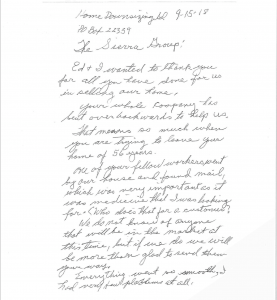 Home Downsizing 9-15-17
PO Box 22339
The Sierra Group:
Ed & I wanted to thank you
for all you have done for us
in selling our home.
Your whole company has
bent over backwards to help us.
That means so much when
you are trying to leave your
home of 56 years.
One of your fellow workers went
by our house and found mail,
which was very important as it
was medicine that I was looking
for. (Who does that for a customer?)
We do not know of anyone
that will be in the market at
this time, but if we do we will
be more than glad to send them
your way.
Everything went so smooth, I
had very few problems at all.